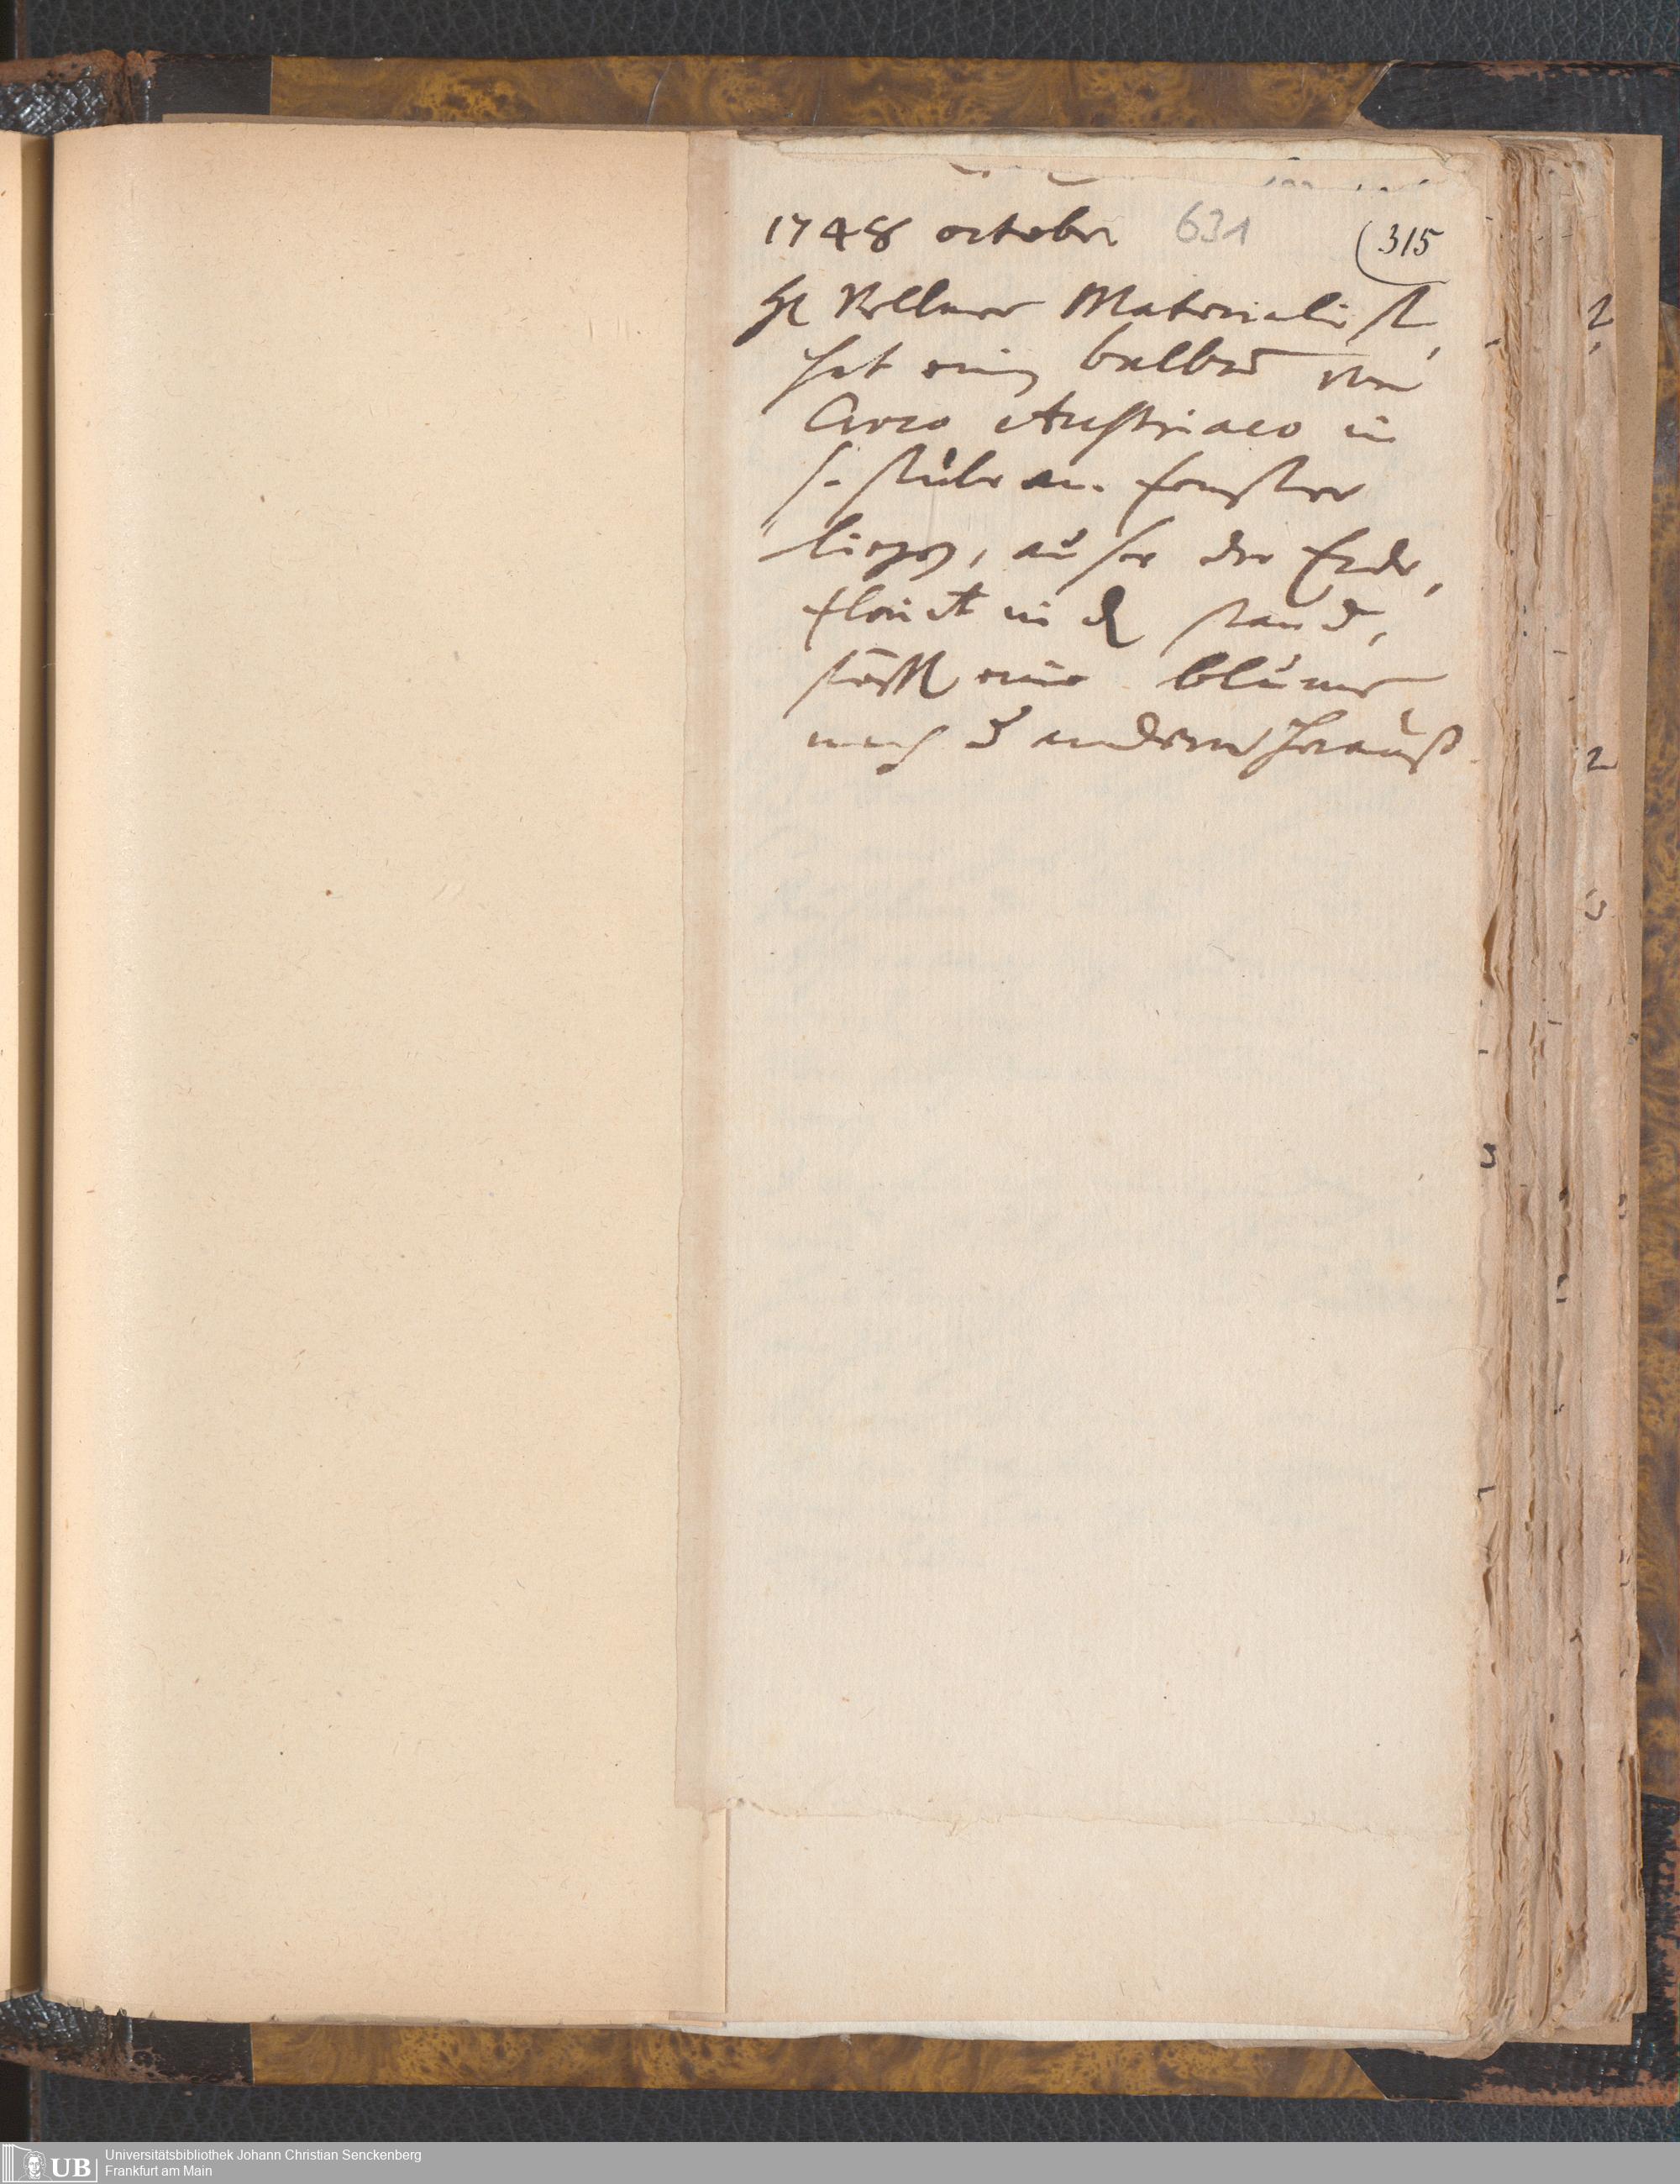 1748 october 631 (315
H Kellner Materialist,
hat einen bulbum von
Croco Austriaco in
s. stube am fenster
liegen, auser der Erde,
floriret in d stand,
stost eine blume
nach d andern herauß.
Universitätsbibliothek Johann Christian Senckenberg
Frankfurt am Main
UB